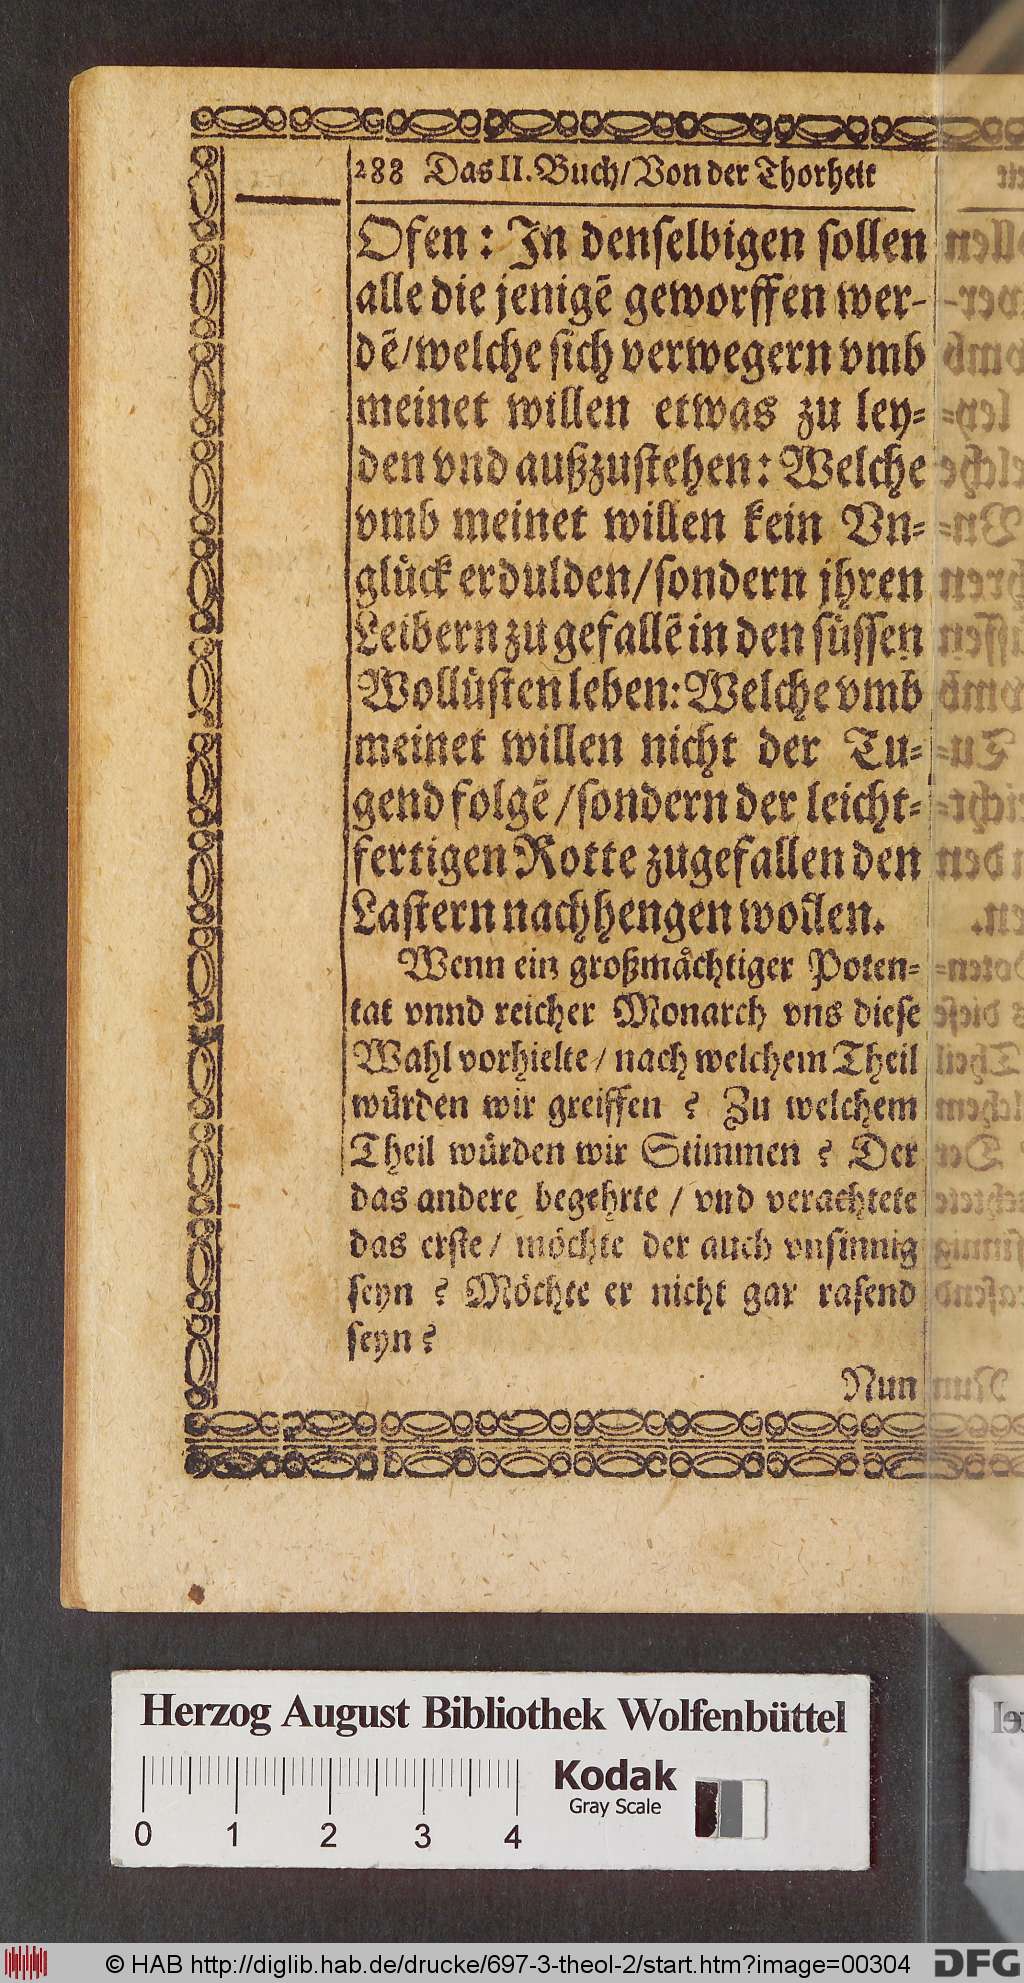 288 Das II. Buch/ Von der Thorheit
Ofen: In denselbigen sollen
alle die jenigẽ geworffen wer-
dẽ/welche sich verwegern vmb
meinet willen etwas zu ley-
den vnd außzustehen: Welche
vmb meinet willen kein Vn-
glück erdulden/sondern jhren
Leibern zu gefallẽ in den süssen
Wollüsten leben: Welche vmb
meinet willen nicht der Tu-
gend folgẽ/sondern der leicht-
fertigen Rotte zugefallen den
Lastern nachhengen wollen.
Wenn ein großmächtiger Poten-
tat vnnd reicher Monarch vns diese
Wahl vorhielte/ nach welchem Theil
würden wir greiffen? Zu welchem
Theil würden wir Stimmen? Der
das andere begehrte / vnd verachtete
das erste/ möchte der auch vnsinnig
seyn? Möchte er nicht gar rasend
seyn?
Nun
Herzog August Bibliothek Wolfenbüttel
0 1 2 3 4
Kodak
Gray Scale
© HAB http://diglib.hab.de/drucke/697-3-theol-2/start.htm?image=00304
DFG